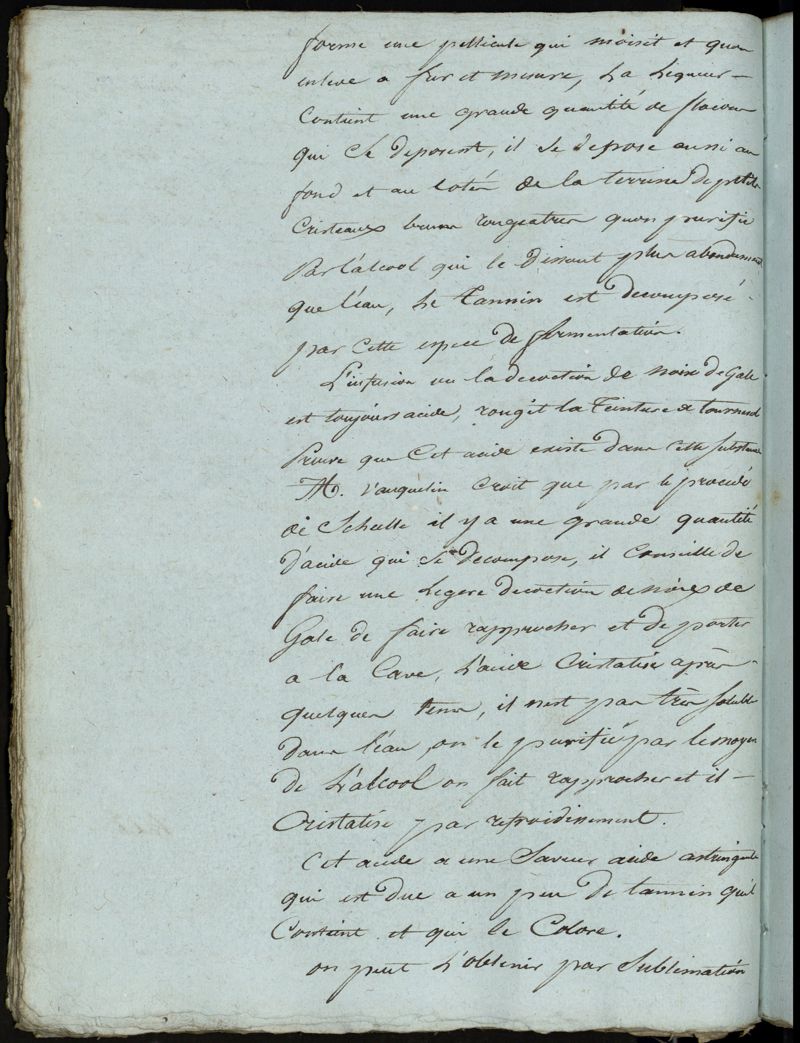 forme une pellicule qui moisit et quon
enleve a fur et mesure, La Liqueur
Contient une grande quantité de flocons
qui Se deposent, il Se depose aussi au
fond et au cotés de la terrine De petits
Cristeaux bruns rougeatres quon purifie
Par l'alcool qui le Dissout plus abondament
que l'eau, Le Tannin est Decomposé
par cette espece de fermentation.
L'infusion ou la decoction de noix de Gale
est toujours acide, rougit la Teinture de tournesol
Preuve que Cet acide existe Dans Cette Substance
M. Vauquelin Croit que par le procédé
de Scheelle il y a une grande quantité
D'acide qui Se Decompose, il Conseille de
faire une Legere decoction de noix de
Gale de faire rapprocher et de porter
a la Cave, L'acide Cristalise après
quelques tems, il nest pas très Soluble
Dans l'eau, on le purifie par le moyen
de L'alcool on fait rapprocher et il
Cristalise par refroidissement.
Cet acide a une Saveur acide astringente
qui est Due a un peu De tannin qu'il
Contient et qui le Colore.
on peut L'obtenir par Sublimation